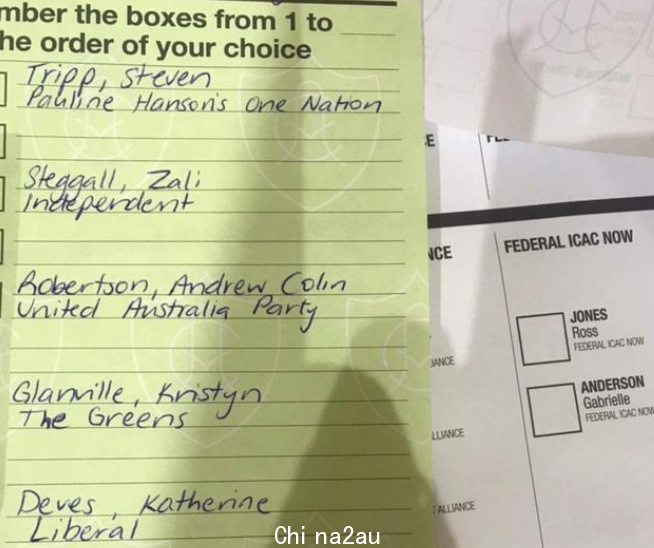 mber the boxes from 1 to
he order of your choice
Tripp, Steven
Pauline Hanson's One Nation
Steggall, Zali
Independent
Robertson, Andrew Colin
United Australia Party
Glanville, Kristyn
The Greens
Deves, Katherine
Liberal
E
NCE
IANCE
LLIANCE
ALLIANCE
FEDERAL ICAC NOW
JONES
Ross
FEDERAL ICAC NOW
ANDERSON
Gabrielle
FEDERAL ICAC NOW
Chi na2au